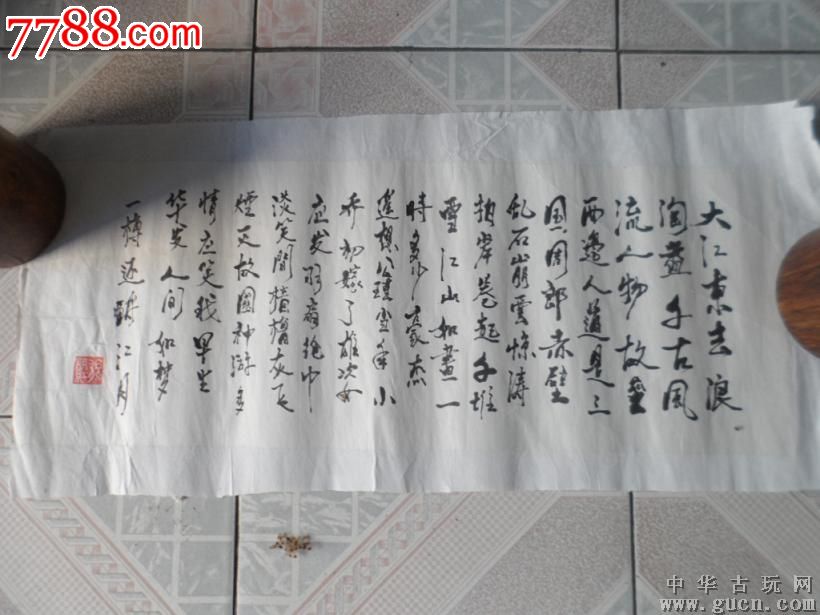 7788.com
大江東去浪
淘盡千古風
流人物故壘
西邊人道是三
國周郎赤壁
乱石崩雲惊涛
拍岸卷起千堆
雪江山如畫一
時多少豪杰
遥想公瑾当年小
乔初嫁了雄姿
应发羽扇纶巾
淡笑間樯櫓灰飞
煙灭故國神游多
情应笑我早生
华发人间如梦
一樽还酹江月
中华古玩网
www.gucn.com